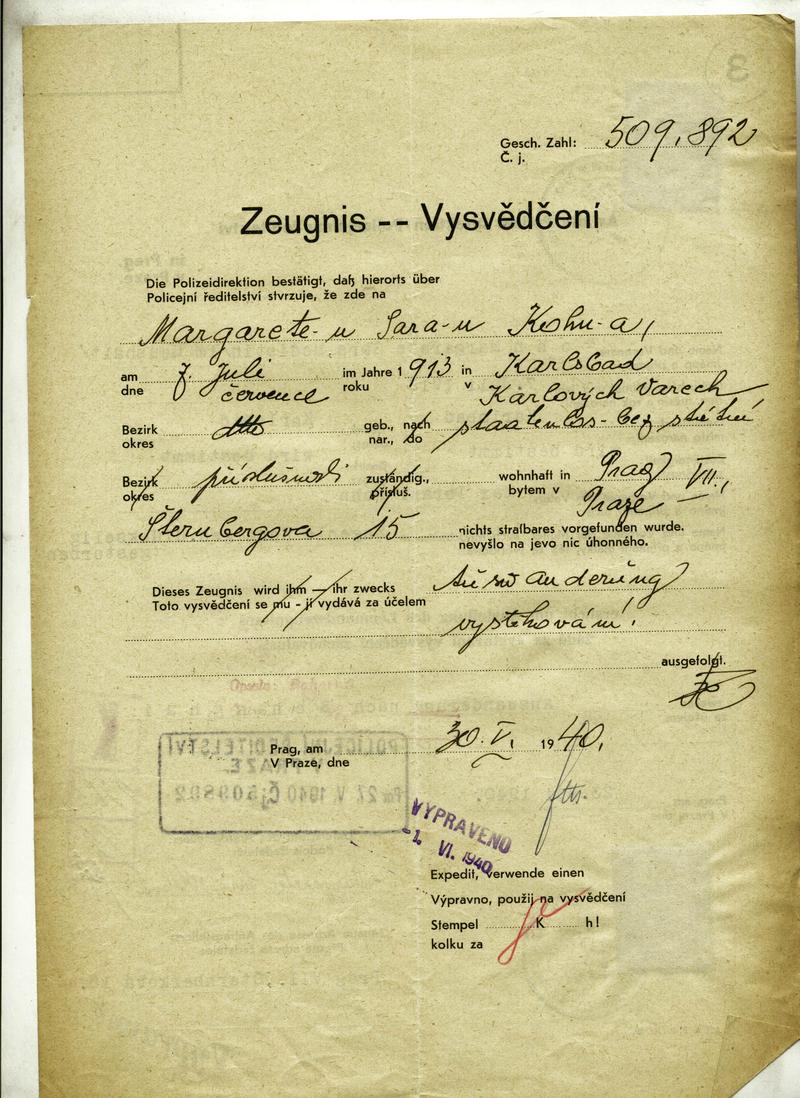 Gesch. Zahl: 509.892
Č. j.
Zeugnis -- Vysvědčení
Die Polizeidirektion bestätigt, daß hierorts über
Policejní ředitelství stvrzuje, že zde na
Margarete-u Sara-u Kohn-a,
am 7. Juli im Jahre 1913 in Karlsbad
dne července roku v Karlových Varech
Bezirk geb., nach staatenlos - bez státní
okres nar., do
Bezirk příslušnosti zuständig., wohnhaft in Prag VII.,
okres přísluš. bytem v Praze
Šternbergova 15 nichts strafbares vorgefunden wurde.
nevyšlo na jevo nic úhonného.
Dieses Zeugnis wird ihm — ihr zwecks Auswanderung
Toto vysvědčení se mu - jí vydává za účelem
vystěhování.
ausgefolgt.
Prag, am 30. V. 1940.
V Praze, dne
POLICEJNÍ ŘEDITELSTVÍ
PRAZE
27. V. 1940 Čj 509892
VYPRAVENO
-1. VI. 1940
Expedit, verwende einen
Výpravno, použij na vysvědčení
Stempel K h!
kolku za